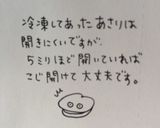 冷凍してあったあさりは
開きにくいですが、
5ミリほど開いていれば
こじ開けて大丈夫です。